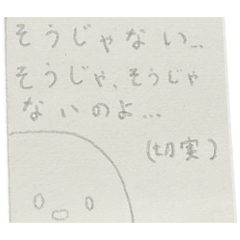 そうじゃない...
そうじゃ、そうじゃ
ないのよ...
(切実)